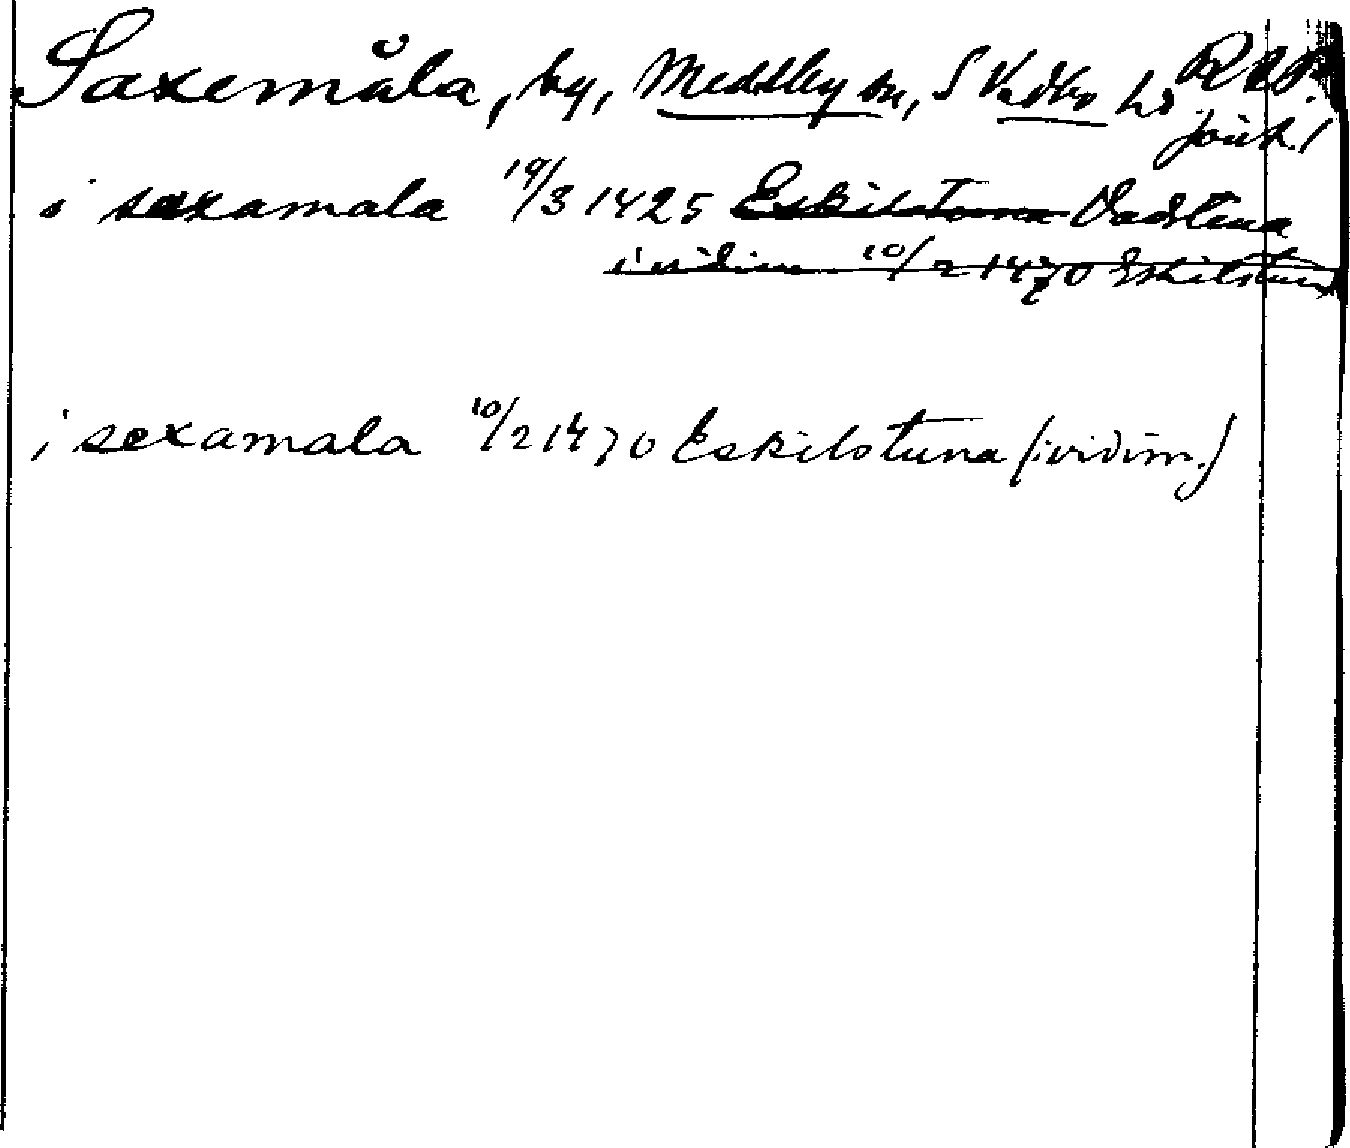 Saxemåla, by, Medelby sn, S Vedbo hd RAP.
i saxamala 19/3 1425 Eskilstuna Vadstena
i vidim. 10/2 1470 Eskilstuna
i sexamala 10/2 1470 Eskilstuna (i vidim.)